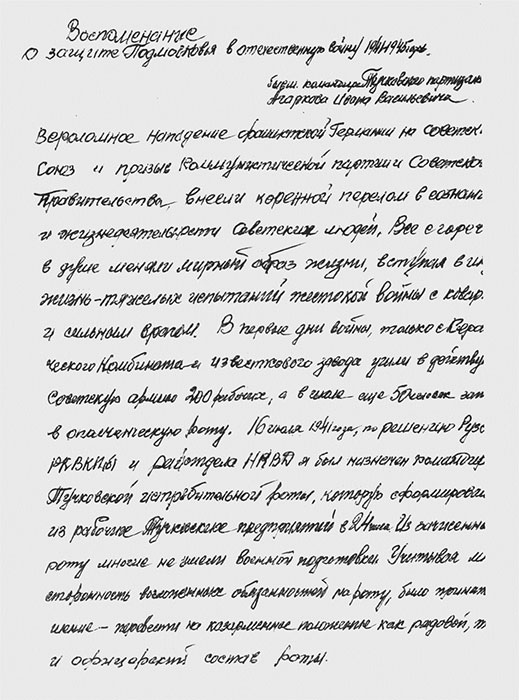 Воспоменание
о защите Подмосковья в отечественную войну 1941-1945 год.
бывш. командира Тучковского партизанс
Агаркова Ивана Васильевича.
Вероломное нападение фашистской Германии на советск.
Союз и призыв Коммунистической партии и Советско
Правительства, внесли коренной перелом в сознани
и жизнедеятельности Советских людей, Все с гореч
в душе меняли мирный образ жизни, вступая в
жизнь-тяжелых испытаний жестокой войны с ковар
и сильным врагом. В первые дни войны, только с Кера
ческого Комбината и известкового завода ушли в действу
советскую армию 200 рабочих, а в июле еще 50 человек зап
в ополченческую роту. 16 июля 1941 года, по решению Рузс
РКВКПб) и райотдела НКВД я был назначен командир
Тучковской истребительной роты, которую сформировали
из рабочих Тучковских предприятий в 24 часа. Из зачисленны
роту многие не имели военной подготовки. Учитывая м
сторонность возложенных обязанностей на роту, было принят
шение - перевести на казарменное положение как рядовой, т
и офицерский состав роты.